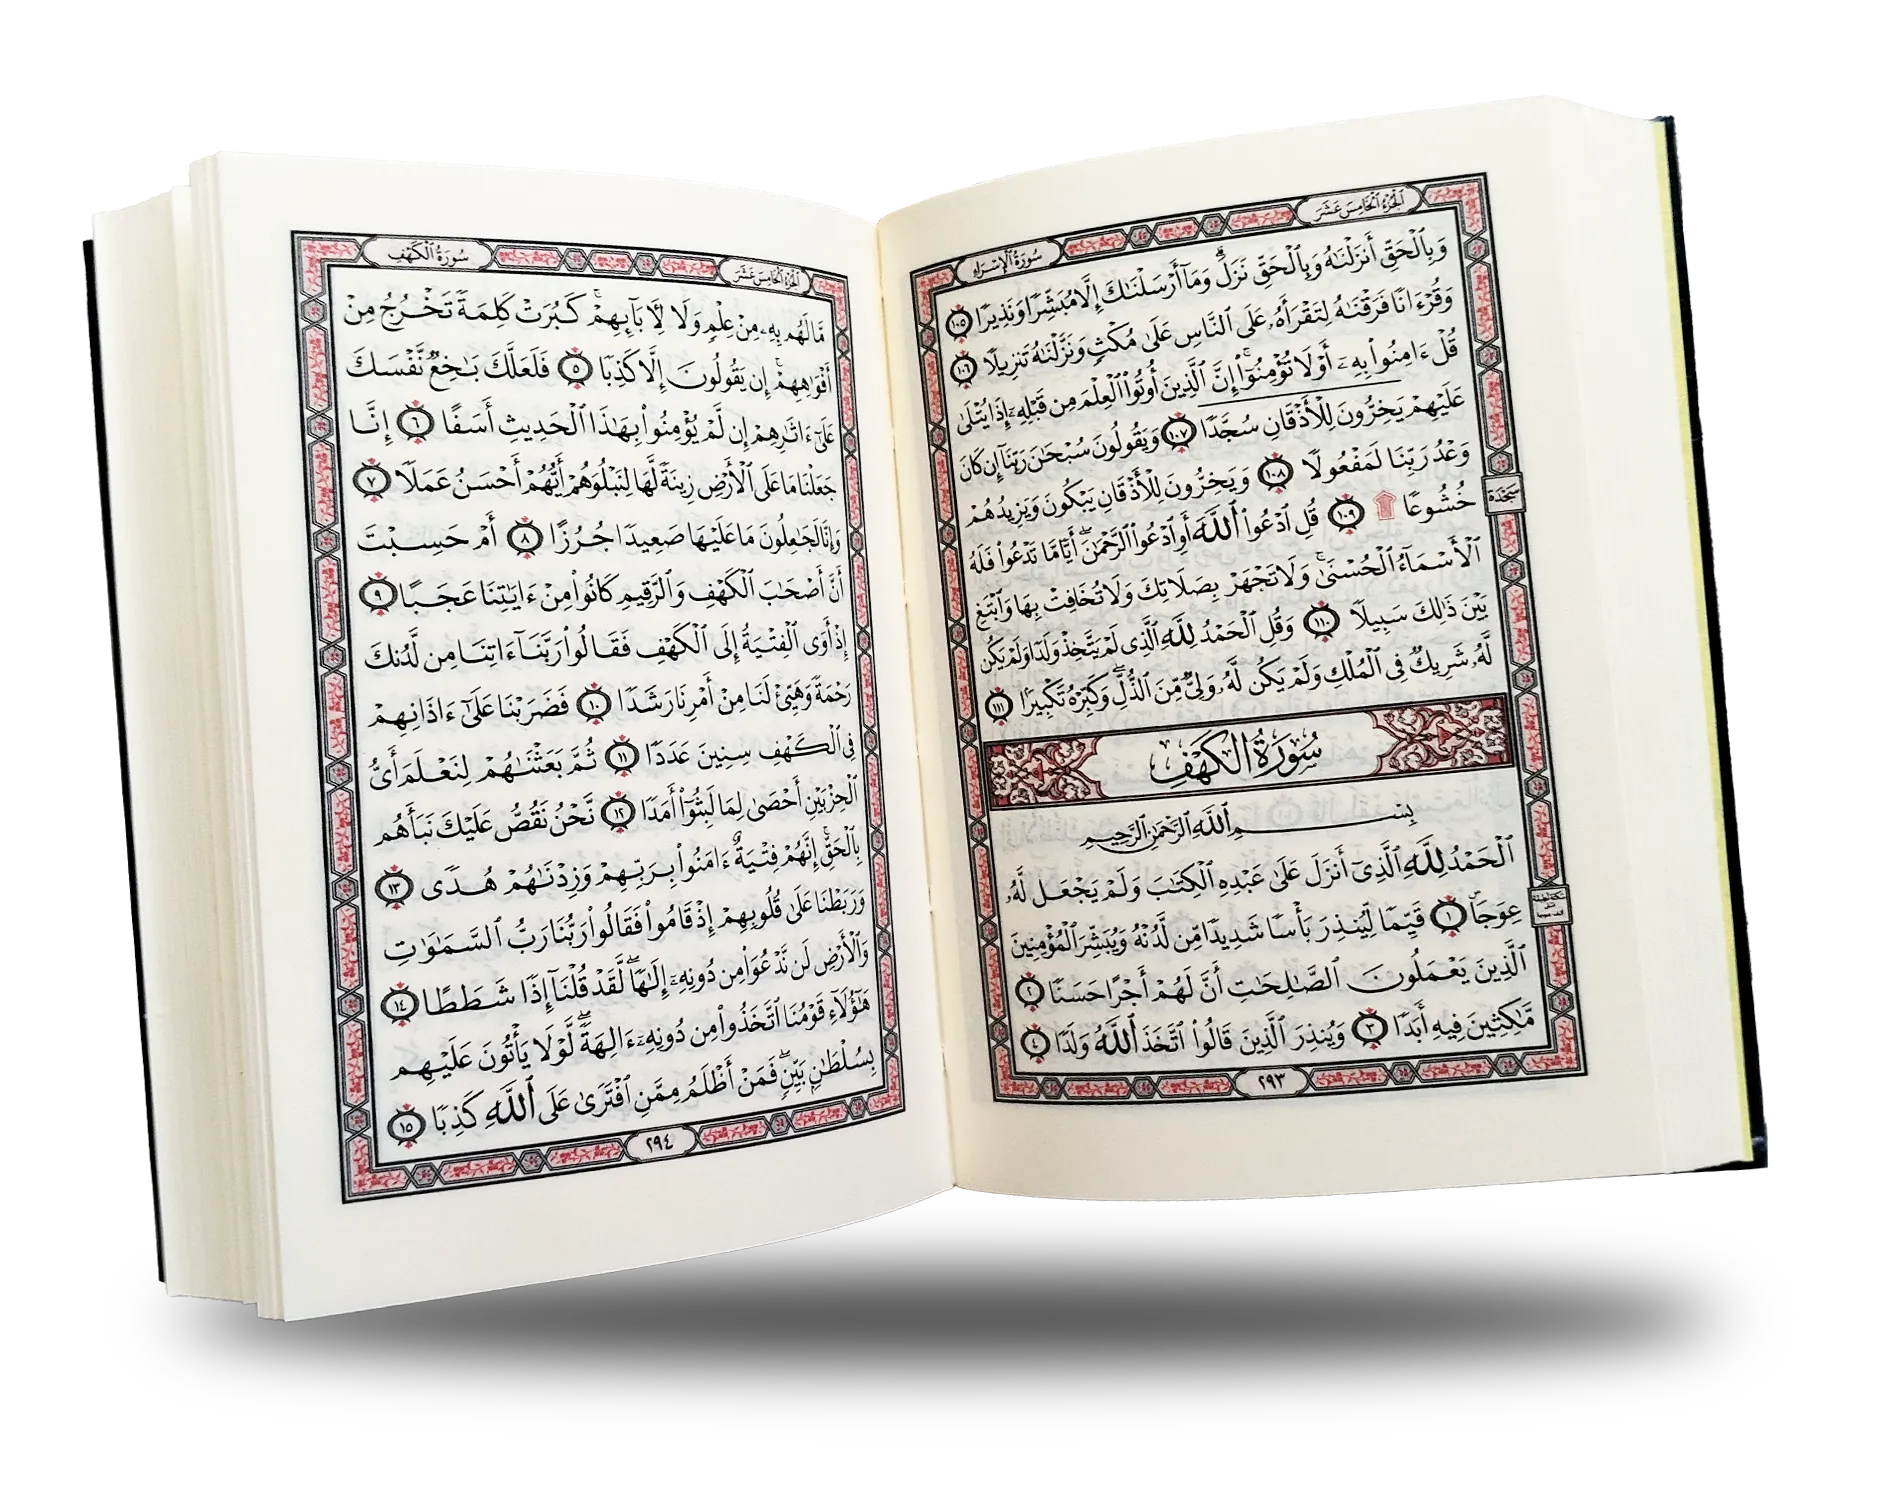 سُورَةُ الإِسْرَاءِ
الجُزْءُ الخَامِسَ عَشَرَ
وَبِٱلْحَقِّ أَنزَلْنَٰهُ وَبِٱلْحَقِّ نَزَلَ ۗ وَمَآ أَرْسَلْنَٰكَ إِلَّا مُبَشِّرًا وَنَذِيرًا ١٠٥
وَقُرْءَانًا فَرَقْنَٰهُ لِتَقْرَأَهُۥ عَلَى ٱلنَّاسِ عَلَىٰ مُكْثٍ وَنَزَّلْنَٰهُ تَنزِيلًا ١٠٦
قُلْ ءَامِنُوا۟ بِهِۦٓ أَوْ لَا تُؤْمِنُوٓا۟ ۚ إِنَّ ٱلَّذِينَ أُوتُوا۟ ٱلْعِلْمَ مِن قَبْلِهِۦٓ إِذَا يُتْلَىٰ
عَلَيْهِمْ يَخِرُّونَ لِلْأَذْقَانِ سُجَّدًا ١٠٧ وَيَقُولُونَ سُبْحَٰنَ رَبِّنَآ إِن كَانَ
وَعْدُ رَبِّنَا لَمَفْعُولًا ١٠٨ وَيَخِرُّونَ لِلْأَذْقَانِ يَبْكُونَ وَيَزِيدُهُمْ
خُشُوعًا ۩ ١٠٩ قُلِ ٱدْعُوا۟ ٱللَّهَ أَوِ ٱدْعُوا۟ ٱلرَّحْمَٰنَ ۖ أَيًّا مَّا تَدْعُوا۟ فَلَهُ
ٱلْأَسْمَآءُ ٱلْحُسْنَىٰ ۚ وَلَا تَجْهَرْ بِصَلَاتِكَ وَلَا تُخَافِتْ بِهَا وَٱبْتَغِ
بَيْنَ ذَٰلِكَ سَبِيلًا ١١٠ وَقُلِ ٱلْحَمْدُ لِلَّهِ ٱلَّذِى لَمْ يَتَّخِذْ وَلَدًا وَلَمْ يَكُن
لَّهُۥ شَرِيكٌ فِى ٱلْمُلْكِ وَلَمْ يَكُن لَّهُۥ وَلِىٌّ مِّنَ ٱلذُّلِّ ۖ وَكَبِّرْهُ تَكْبِيرًا ١١١
سُورَةُ الكَهْفِ
بِسْمِ ٱللَّهِ ٱلرَّحْمَٰنِ ٱلرَّحِيمِ
ٱلْحَمْدُ لِلَّهِ ٱلَّذِىٓ أَنزَلَ عَلَىٰ عَبْدِهِ ٱلْكِتَٰبَ وَلَمْ يَجْعَل لَّهُۥ
عِوَجَا ۜ ١ قَيِّمًا لِّيُنذِرَ بَأْسًا شَدِيدًا مِّن لَّدُنْهُ وَيُبَشِّرَ ٱلْمُؤْمِنِينَ
ٱلَّذِينَ يَعْمَلُونَ ٱلصَّٰلِحَٰتِ أَنَّ لَهُمْ أَجْرًا حَسَنًا ٢
مَّٰكِثِينَ فِيهِ أَبَدًا ٣ وَيُنذِرَ ٱلَّذِينَ قَالُوا۟ ٱتَّخَذَ ٱللَّهُ وَلَدًا ٤
سَجْدَة
٢٩٣
سُورَةُ الكَهْفِ
الجُزْءُ الخَامِسَ عَشَرَ
مَّا لَهُم بِهِۦ مِنْ عِلْمٍ وَلَا لِـَٔابَآئِهِمْ ۚ كَبُرَتْ كَلِمَةً تَخْرُجُ مِنْ
أَفْوَٰهِهِمْ ۚ إِن يَقُولُونَ إِلَّا كَذِبًا ٥ فَلَعَلَّكَ بَٰخِعٌ نَّفْسَكَ
عَلَىٰٓ ءَاثَٰرِهِمْ إِن لَّمْ يُؤْمِنُوا۟ بِهَٰذَا ٱلْحَدِيثِ أَسَفًا ٦ إِنَّا
جَعَلْنَا مَا عَلَى ٱلْأَرْضِ زِينَةً لَّهَا لِنَبْلُوَهُمْ أَيُّهُمْ أَحْسَنُ عَمَلًا ٧
وَإِنَّا لَجَٰعِلُونَ مَا عَلَيْهَا صَعِيدًا جُرُزًا ٨ أَمْ حَسِبْتَ
أَنَّ أَصْحَٰبَ ٱلْكَهْفِ وَٱلرَّقِيمِ كَانُوا۟ مِنْ ءَايَٰتِنَا عَجَبًا ٩
إِذْ أَوَى ٱلْفِتْيَةُ إِلَى ٱلْكَهْفِ فَقَالُوا۟ رَبَّنَآ ءَاتِنَا مِن لَّدُنكَ
رَحْمَةً وَهَيِّئْ لَنَا مِنْ أَمْرِنَا رَشَدًا ١٠ فَضَرَبْنَا عَلَىٰٓ ءَاذَانِهِمْ
فِى ٱلْكَهْفِ سِنِينَ عَدَدًا ١١ ثُمَّ بَعَثْنَٰهُمْ لِنَعْلَمَ أَىُّ
ٱلْحِزْبَيْنِ أَحْصَىٰ لِمَا لَبِثُوٓا۟ أَمَدًا ١٢ نَّحْنُ نَقُصُّ عَلَيْكَ نَبَأَهُم
بِٱلْحَقِّ ۚ إِنَّهُمْ فِتْيَةٌ ءَامَنُوا۟ بِرَبِّهِمْ وَزِدْنَٰهُمْ هُدًى ١٣
وَرَبَطْنَا عَلَىٰ قُلُوبِهِمْ إِذْ قَامُوا۟ فَقَالُوا۟ رَبُّنَا رَبُّ ٱلسَّمَٰوَٰتِ
وَٱلْأَرْضِ لَن نَّدْعُوَا۟ مِن دُونِهِۦٓ إِلَٰهًا ۖ لَّقَدْ قُلْنَآ إِذًا شَطَطًا ١٤
هَٰٓؤُلَآءِ قَوْمُنَا ٱتَّخَذُوا۟ مِن دُونِهِۦٓ ءَالِهَةً ۖ لَّوْلَا يَأْتُونَ عَلَيْهِم
بِسُلْطَٰنٍۭ بَيِّنٍ ۖ فَمَنْ أَظْلَمُ مِمَّنِ ٱفْتَرَىٰ عَلَى ٱللَّهِ كَذِبًا ١٥
٢٩٤